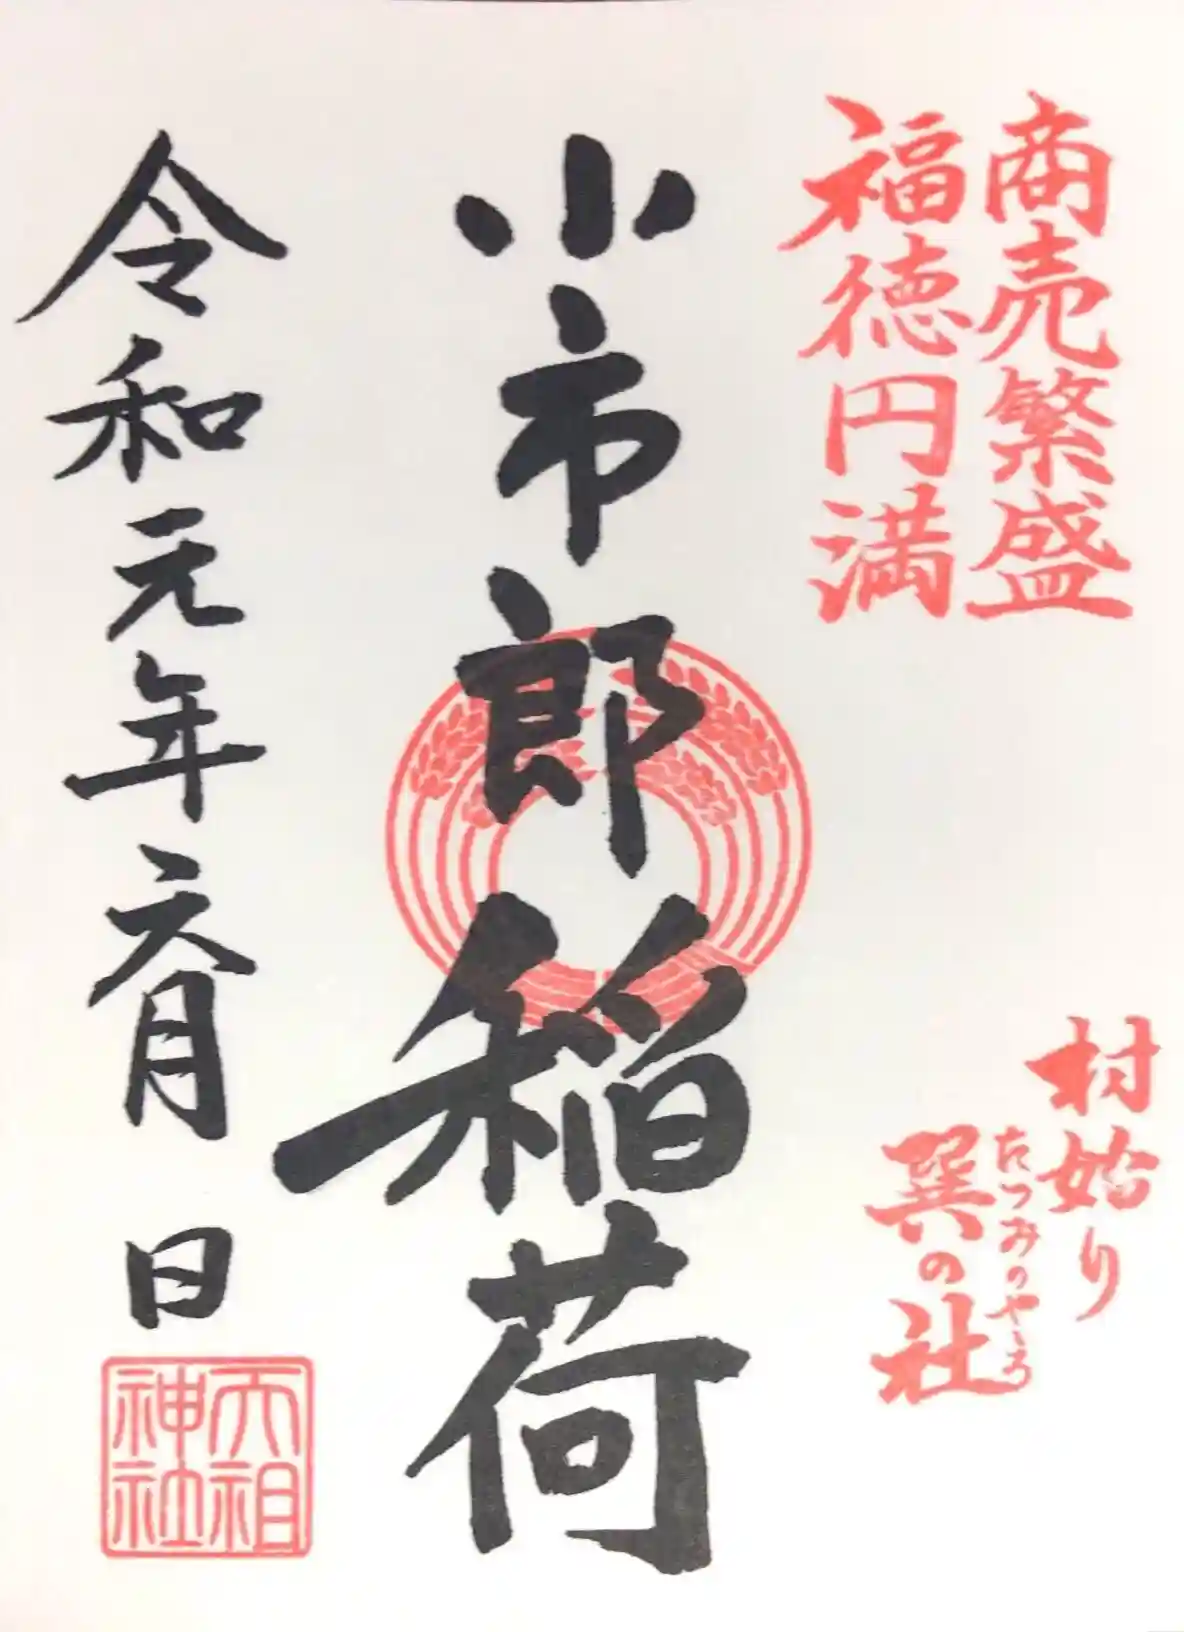 商売繁盛
福徳円満
村始り
たつみのやしろ
巽の社
小市郎稲荷
令和元年六月 日
天祖
神社